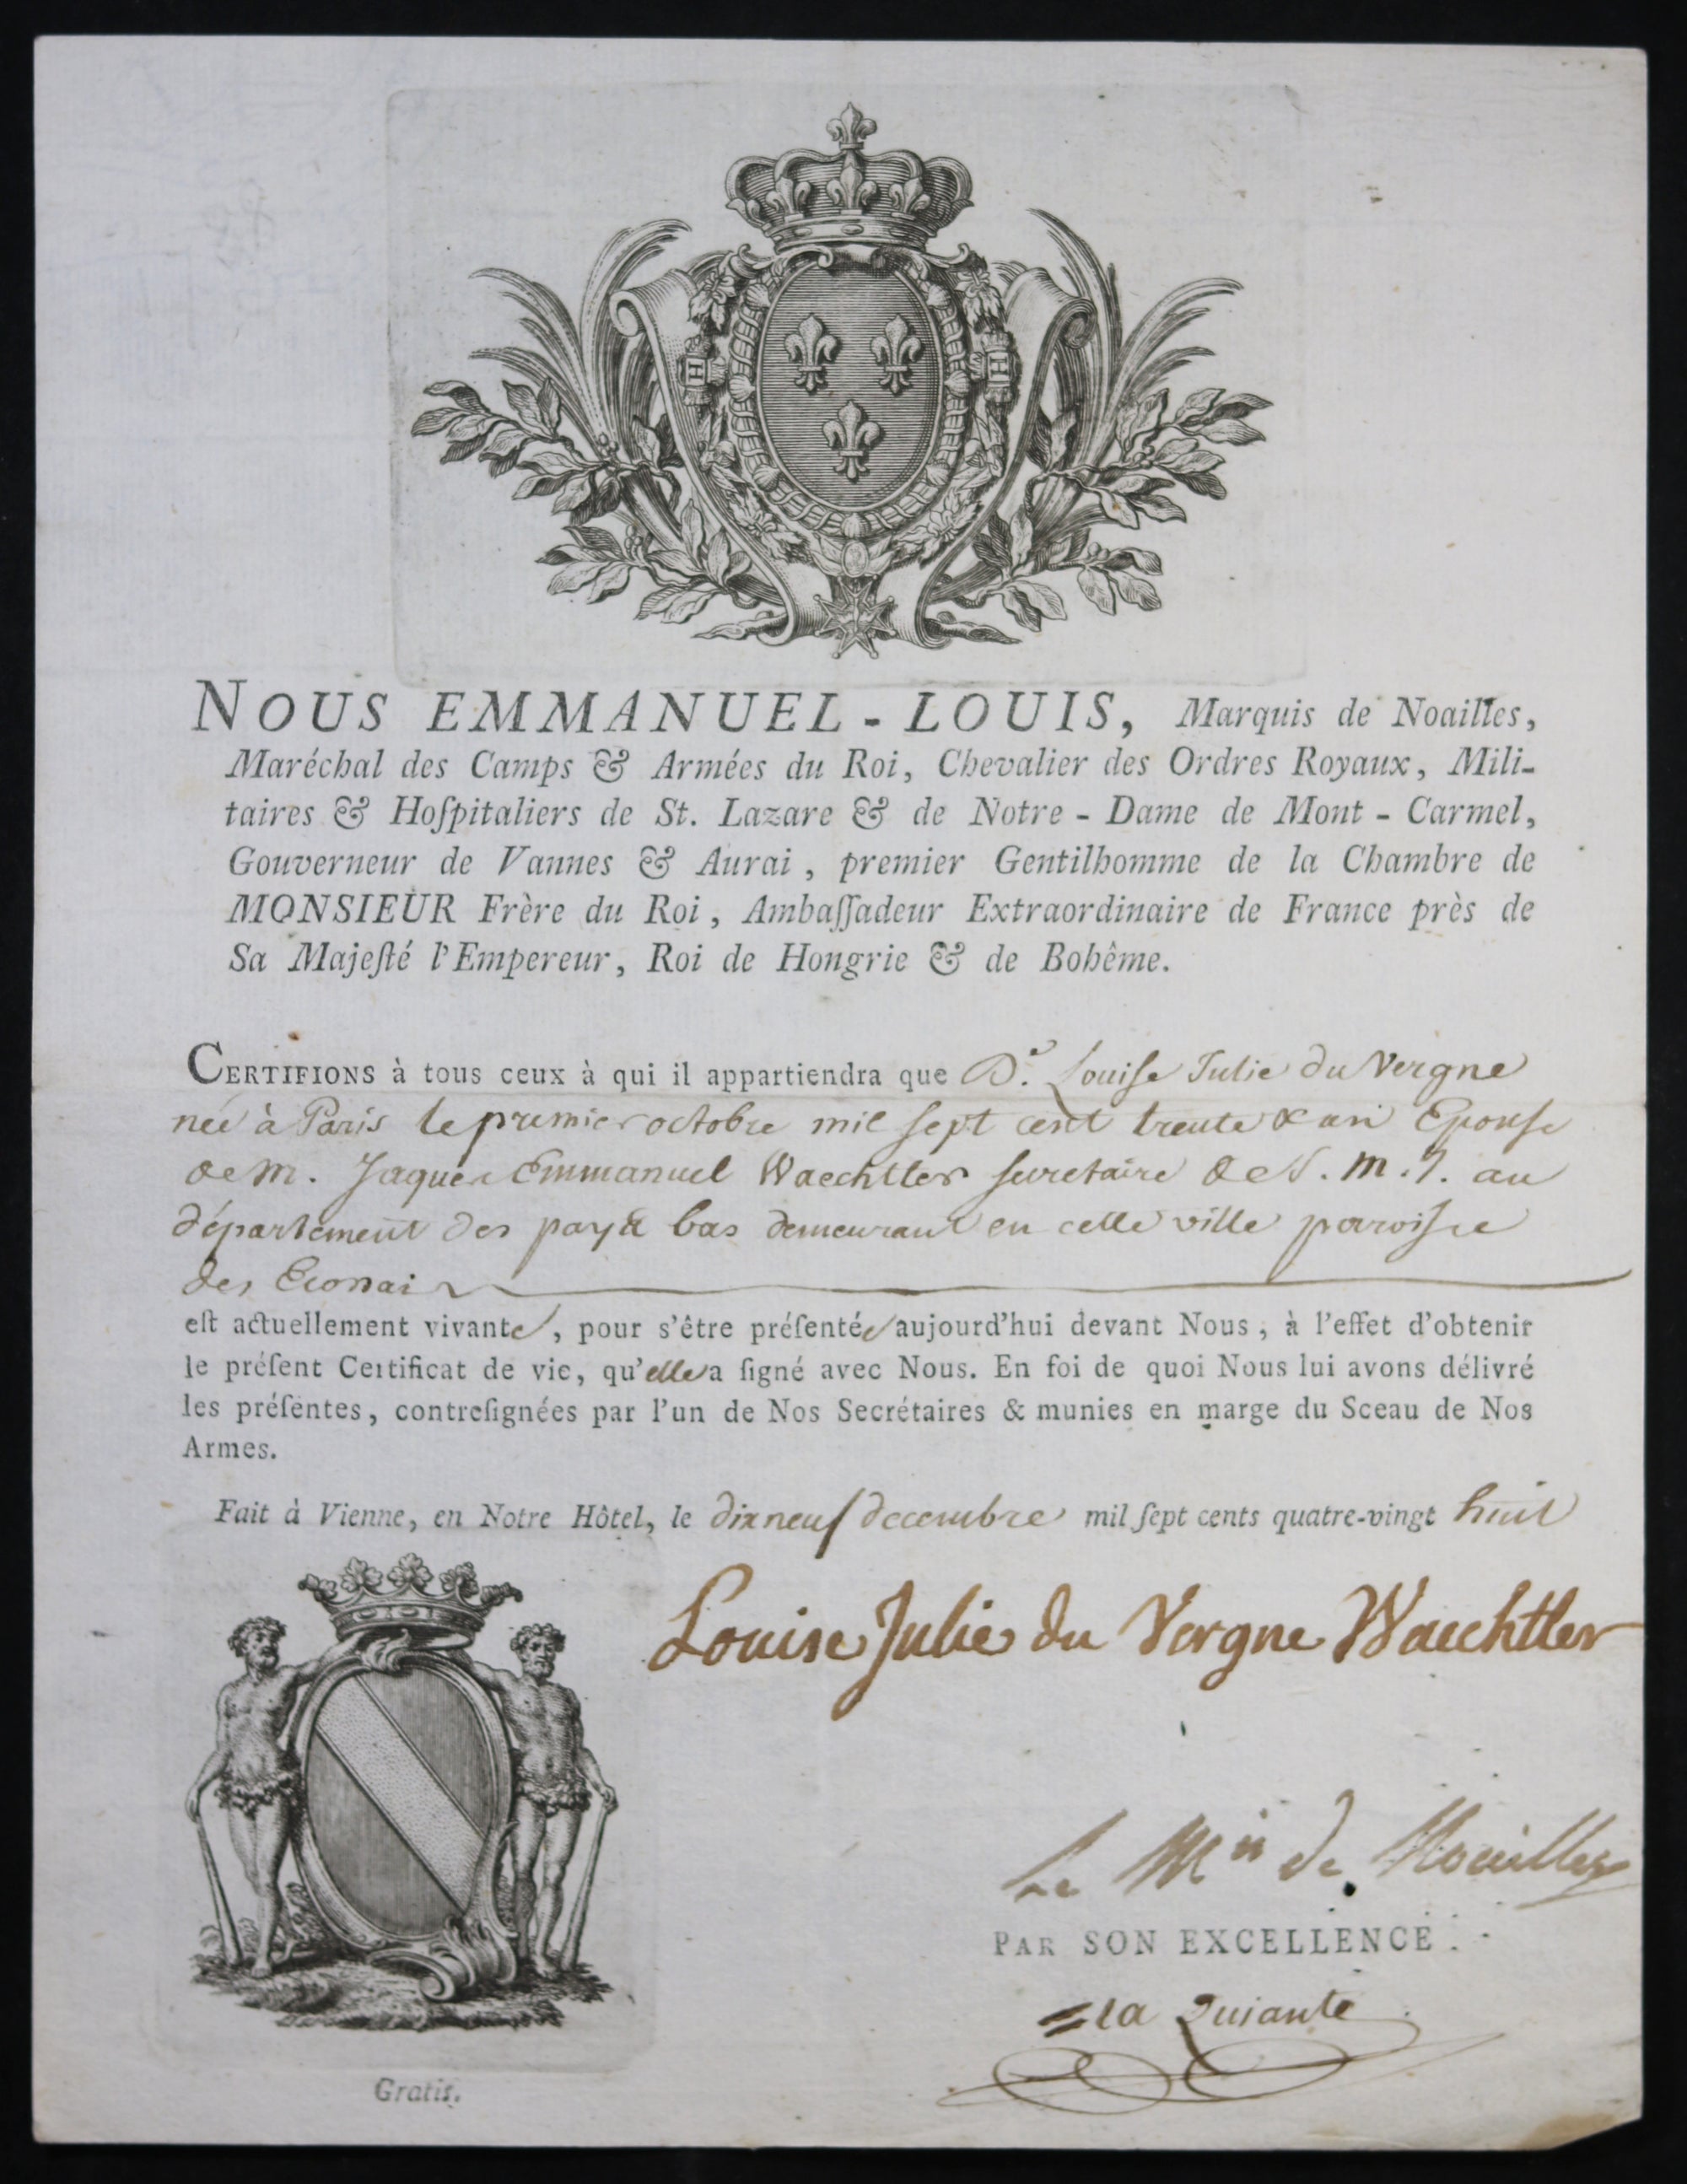 NOUS EMMANUEL-LOUIS, Marquis de Noailles,
Maréchal des Camps & Armées du Roi, Chevalier des Ordres Royaux, Mili-
taires & Hoſpitaliers de St. Lazare & de Notre-Dame de Mont-Carmel,
Gouverneur de Vannes & Aurai, premier Gentilhomme de la Chambre de
MONSIEUR Frère du Roi, Ambaſſadeur Extraordinaire de France près de
Sa Majeſté l'Empereur, Roi de Hongrie & de Bohême.
CERTIFIONS à tous ceux à qui il appartiendra que De. Louiſe Julie du Vergne
née à Paris le premier octobre mil ſept cent trente & un Epouſe
de M. Jaques Emmanuel Waechtler ſecretaire de S. M. I. au
département des pays bas demeurant en cette ville paroiſſe
des
eſt actuellement vivante, pour s'être préſentée aujourd'hui devant Nous, à l'effet d'obtenir
le préſent Certificat de vie, qu'elle a ſigné avec Nous. En foi de quoi Nous lui avons délivré
les préſentes, contreſignées par l'un de Nos Secrétaires & munies en marge du Sceau de Nos
Armes.
Fait à Vienne, en Notre Hôtel, le dix neuf decembre mil ſept cents quatre-vingt huit
Louise Julie du Vergne Waechtler
Le Mis de Noailles
PAR SON EXCELLENCE.
la Quiante
Gratis.
H
H